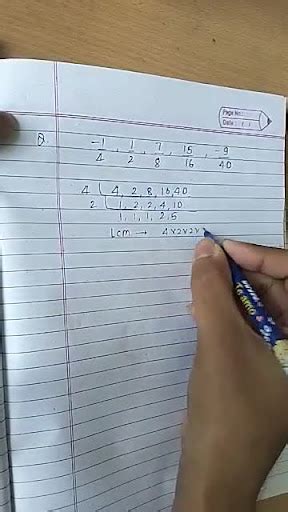 Page No.:
Date: / /
Q. -1/4, 1/2, 7/8, 15/16, -9/40
4 | 4, 2, 8, 16, 40
2 | 1, 2, 2, 4, 10
1, 1, 1, 2, 5
Lcm → 4×2×2×